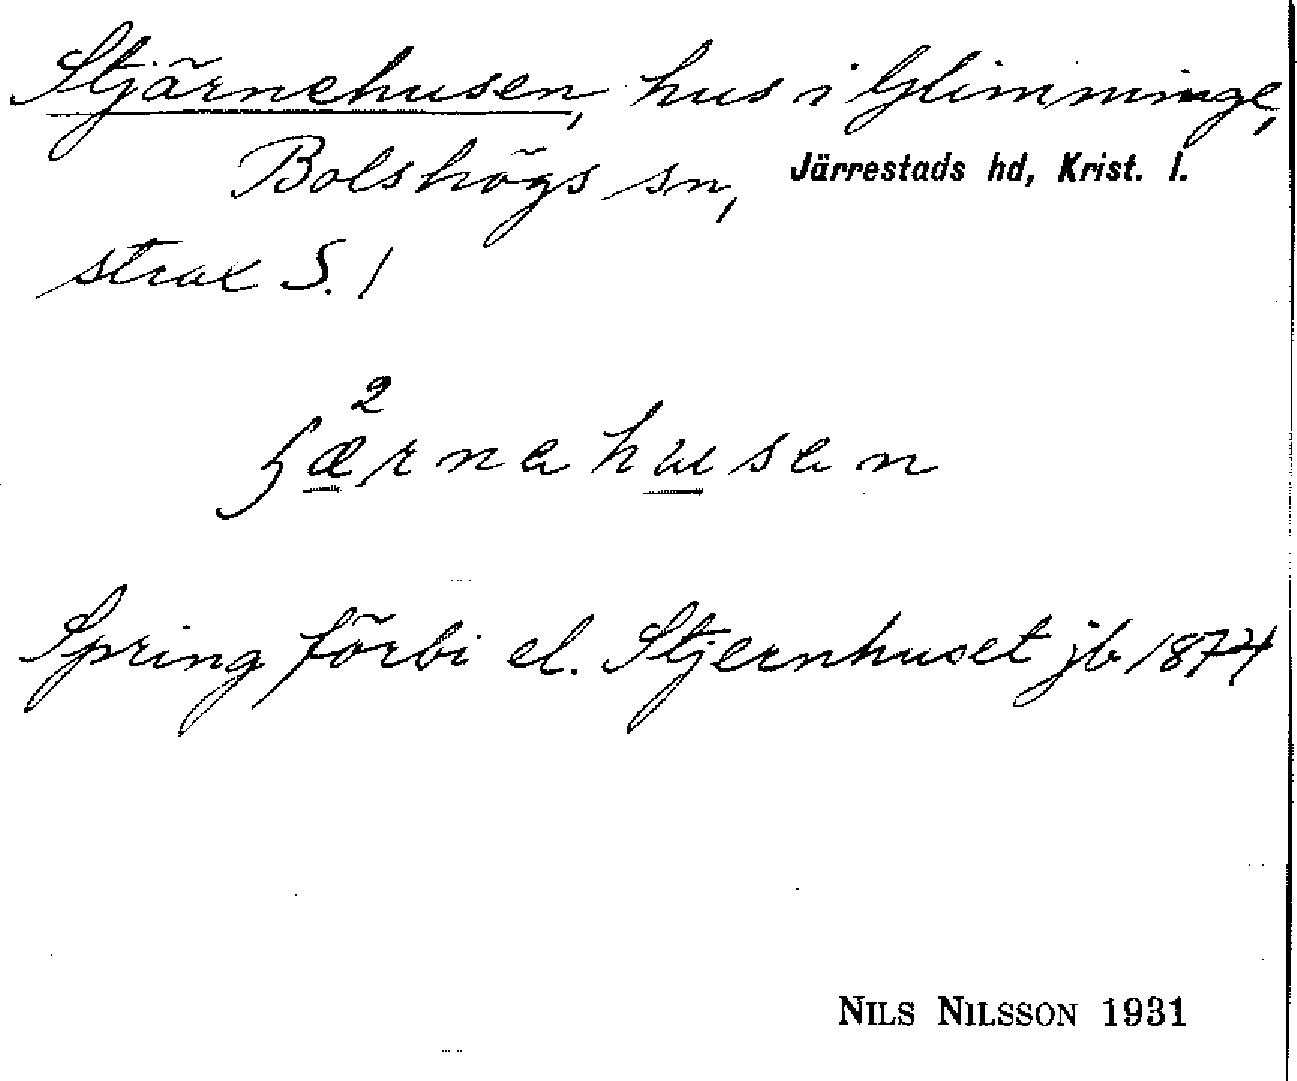 Stjärnehusen, hus i Glimminge,
Bolshögs sn, Järrestads hd, Krist. l.
strax S. 1
2
ʃærnahusan
Spring förbi el. Stjernhuset jb 1874
NILS NILSSON 1931